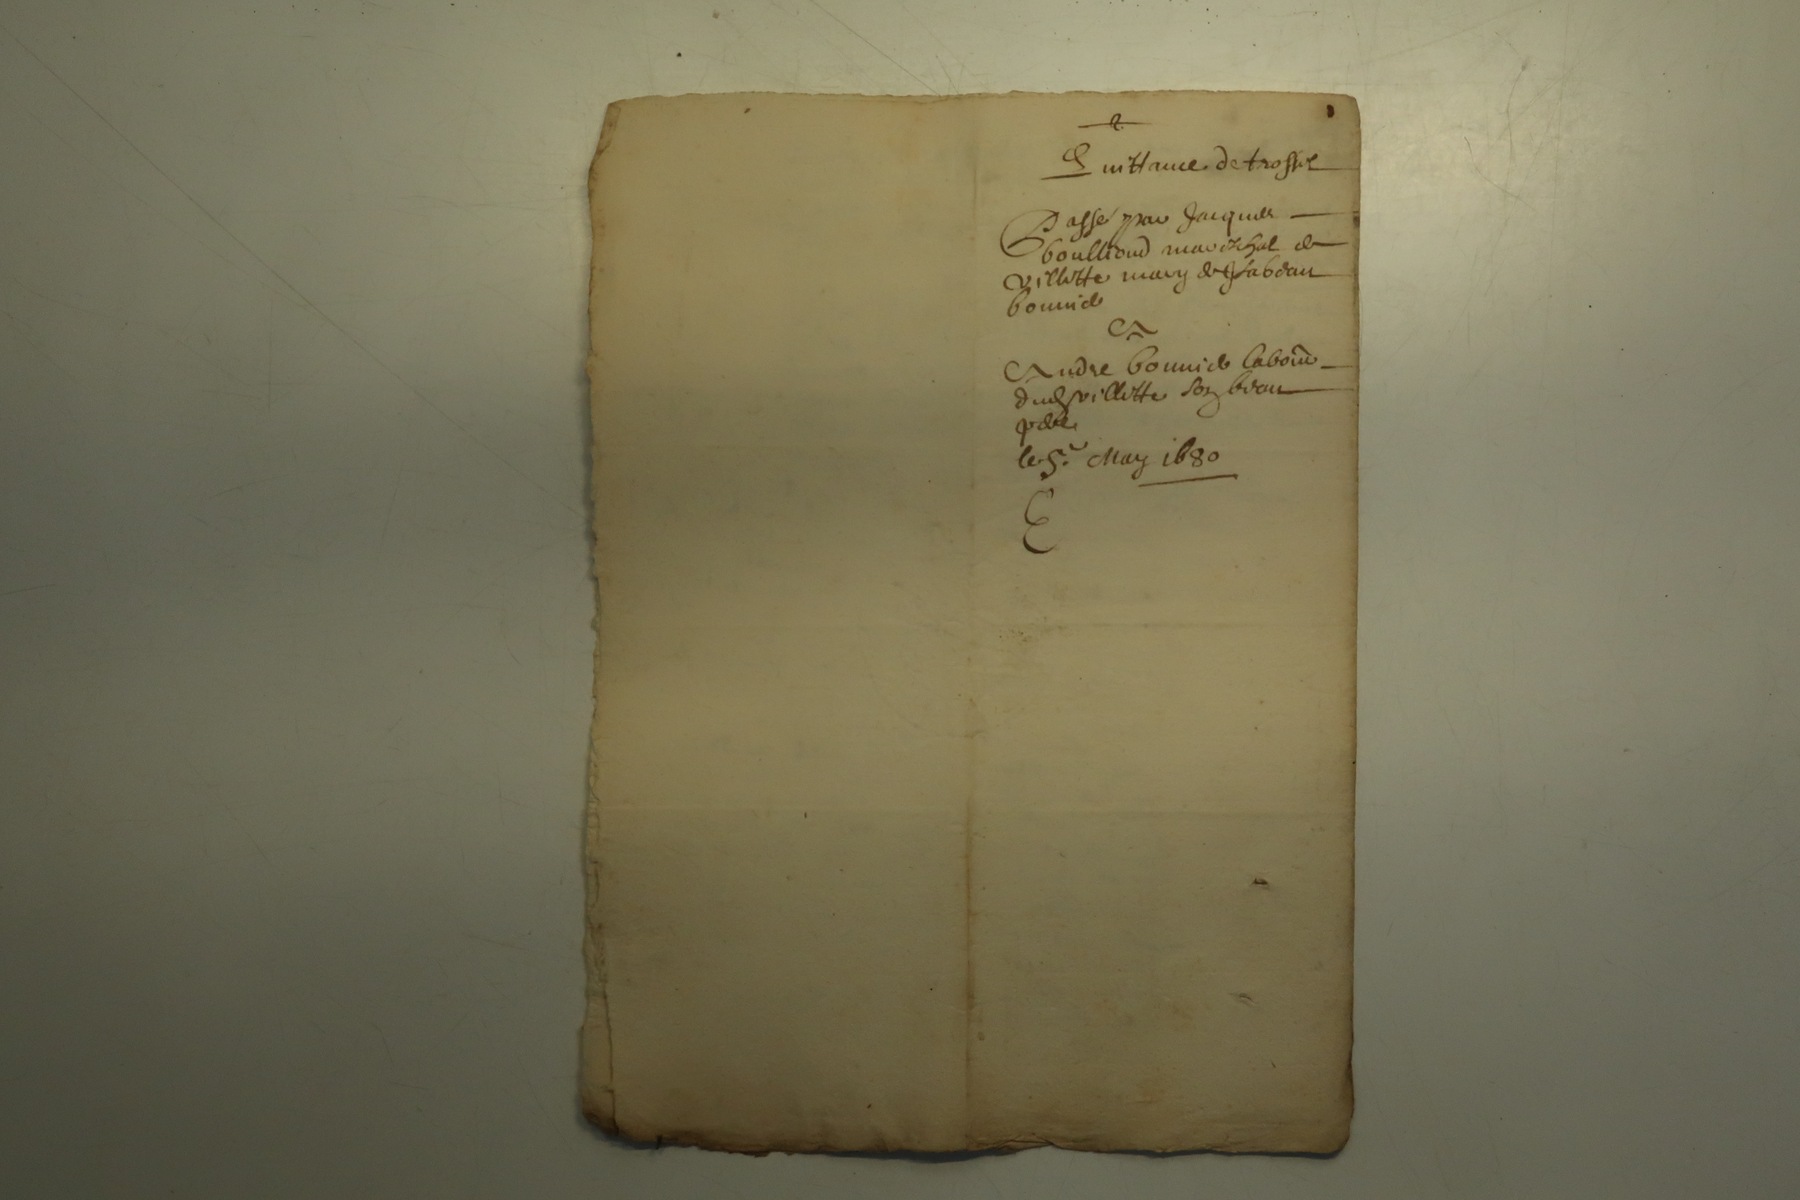 2.
Quittance de trossel
Passé par Jacques
boullioud mareschal de
villette mary de Ysabeau
bonnide
A
Andre bonnide labour
dud villette son beau
pere
le 5e May 1680
E